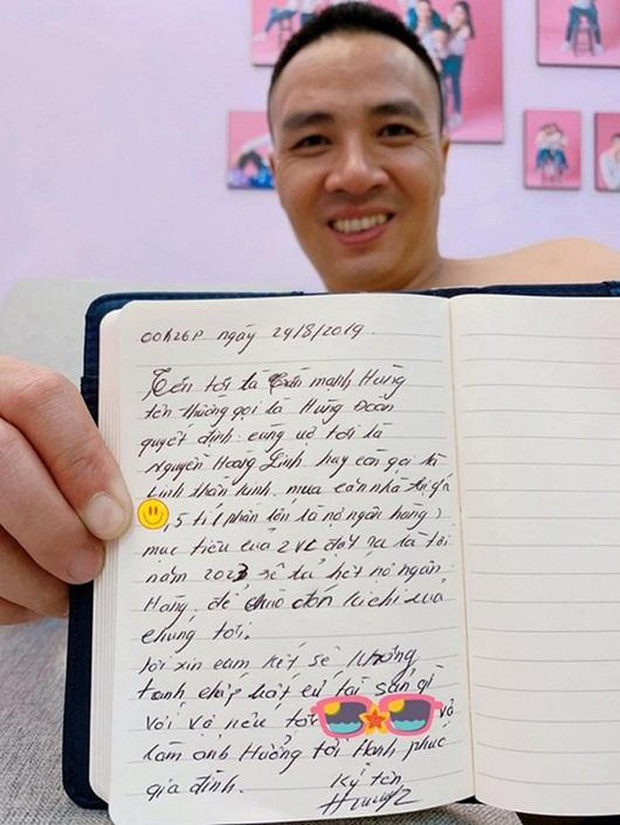 00h26p ngày 29/8/2019.
Tên tôi là Trần mạnh Hùng
tên thường gọi là Hùng Đoàn
quyết định cùng vợ tôi là
Nguyễn Hoàng Linh hay còn gọi là
Linh thần kinh. mua căn nhà trị giá
,5 tỉ ( phần lớn là nợ ngân hàng )
mục tiêu của 2 VC đặt ra là tới
năm 2023 sẽ trả hết nợ ngân
Hàng. để chào đón của
chúng tôi.
tôi xin cam kết sẽ không
tranh chấp bất cứ tài sản gì
với vợ nếu tôi và
làm ảnh Hưởng tới Hạnh phúc
gia đình.
Ký tên